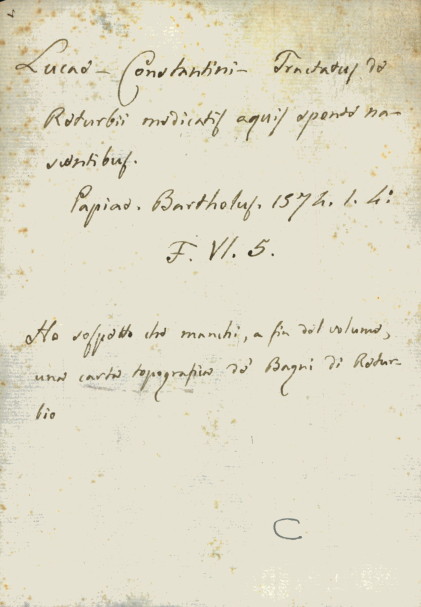 Lucae - Constantini - Tractatus de
Returbii medicatis aquis sponte na-
scentibus.
Papiae. Bartholus. 1574. 1. 4:
F. VI. 5.
Ho sospetto che manchi, a fin del volume,
una carta topografica de' Bagni di Retur-
bio
C